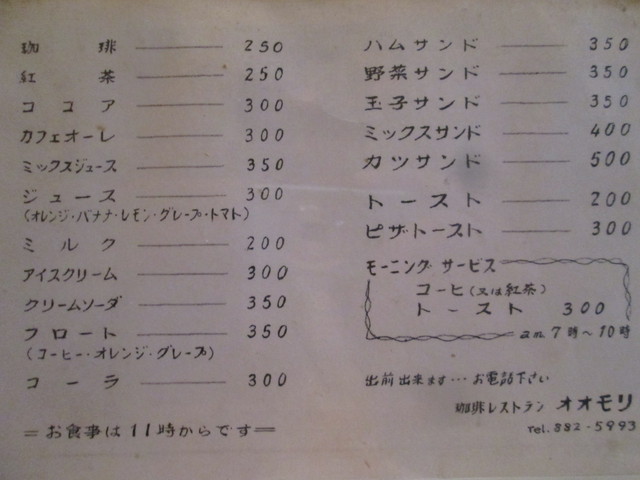 珈琲 250
紅茶 250
ココア 300
カフェオーレ 300
ミックスジュース 350
ジュース 300
(オレンジ・バナナ・レモン・グレープ・トマト)
ミルク 200
アイスクリーム 300
クリームソーダ 350
フロート 350
(コーヒー・オレンジ・グレープ)
コーラ 300
=お食事は11時からです=
ハムサンド 350
野菜サンド 350
玉子サンド 350
ミックスサンド 400
カツサンド 500
トースト 200
ピザトースト 300
モーニングサービス
コーヒ(又は紅茶)
トースト 300
am.7時~10時
出前出来ます…お電話下さい
珈琲レストラン オオモリ
Tel.882-5993